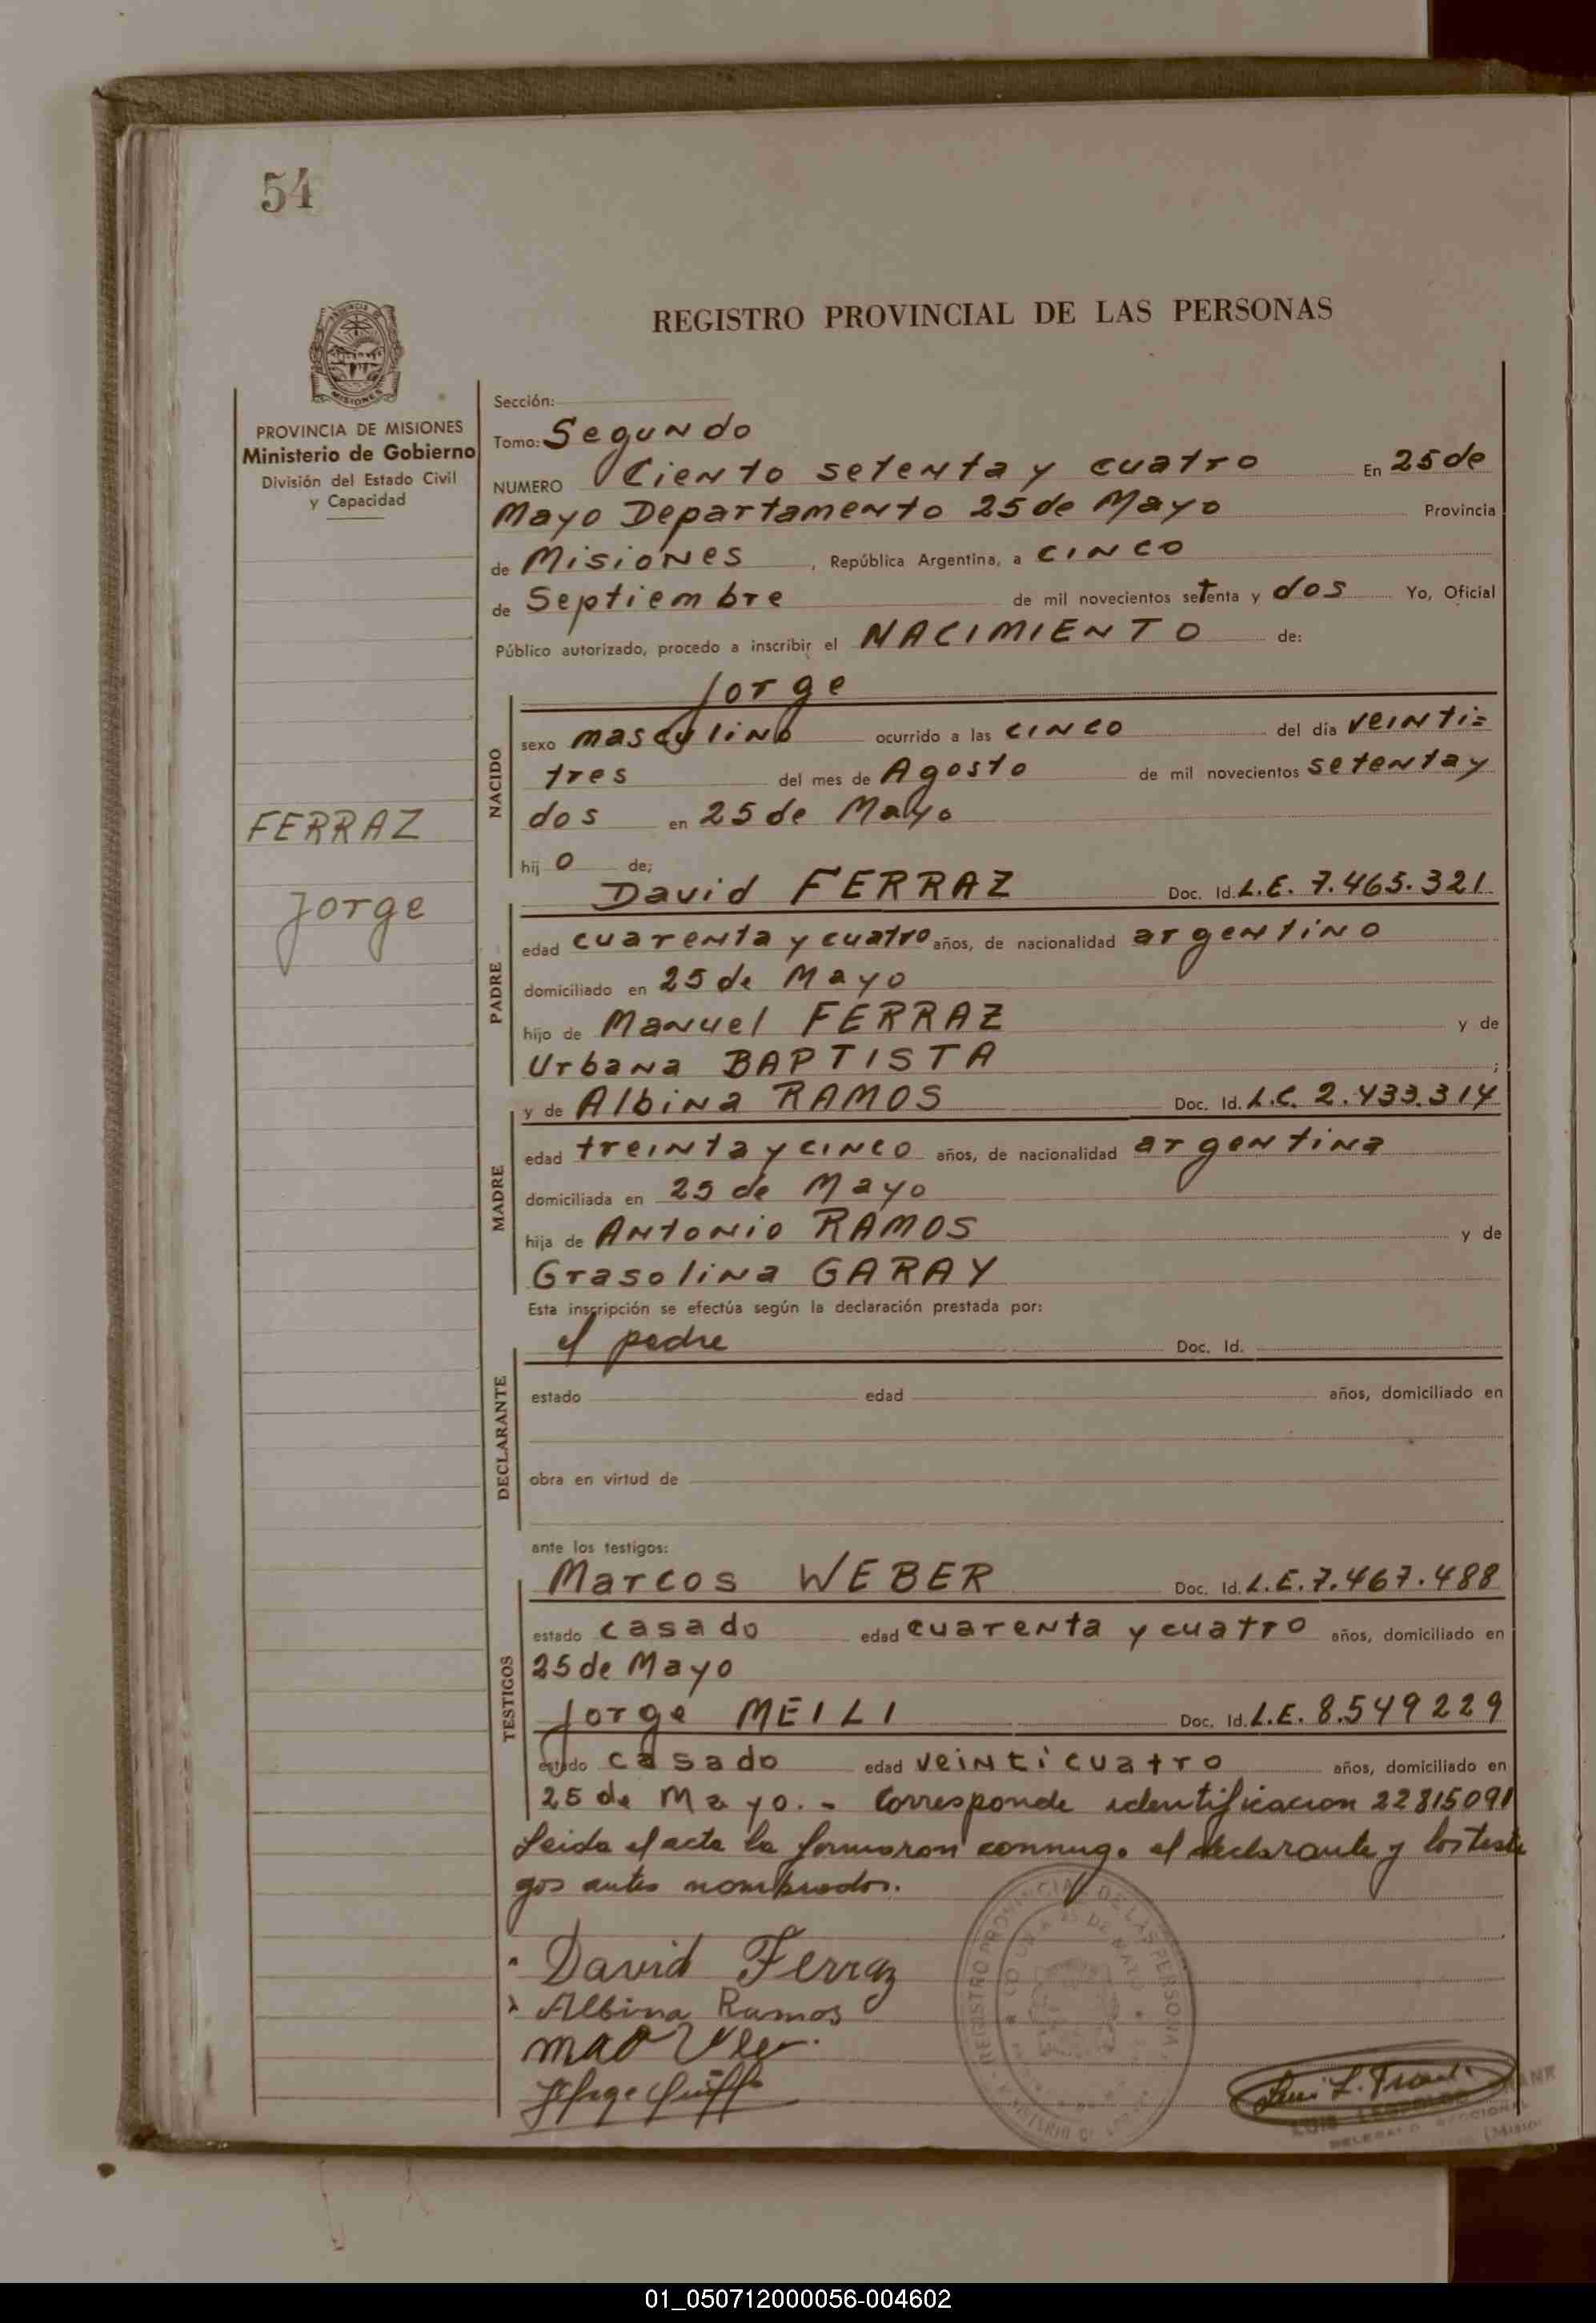 54
REGISTRO PROVINCIAL DE LAS PERSONAS
MISIONES
PROVINCIA DE MISIONES
Ministerio de Gobierno
División del Estado Civil
y Capacidad
Sección:
Tomo: Segundo
NUMERO Ciento setenta y cuatro En 25 de
Mayo Departamento 25 de Mayo Provincia
de Misiones, República Argentina, a cinco
de Septiembre de mil novecientos setenta y dos Yo, Oficial
Público autorizado, procedo a inscribir el NACIMIENTO de:
Jorge
NACIDO
sexo masculino ocurrido a las cinco del día veinti=
tres del mes de Agosto de mil novecientos setenta y
dos en 25 de Mayo
FERRAZ
Jorge
hij o de;
David FERRAZ Doc. Id. L.E. 7.465.321
PADRE
edad cuarenta y cuatro años, de nacionalidad argentino
domiciliado en 25 de Mayo
hijo de Manuel FERRAZ y de
Urbana BAPTISTA ;
y de Albina RAMOS Doc. Id. L.C. 2.433.314
MADRE
edad treinta y cinco años, de nacionalidad argentina
domiciliada en 25 de Mayo
hija de Antonio RAMOS y de
Grasolina GARAY
Esta inscripción se efectúa según la declaración prestada por:
el padre Doc. Id.
DECLARANTE
estado edad años, domiciliado en
obra en virtud de
ante los testigos:
Marcos WEBER Doc. Id. L.E. 7.467.488
TESTIGOS
estado casado edad cuarenta y cuatro años, domiciliado en
25 de Mayo
Jorge MEILI Doc. Id. L.E. 8.549229
estado casado edad veinticuatro años, domiciliado en
25 de Mayo. - Corresponde identificacion 22815091
Leida el acta la formaron conmigo el declarante y los testi
gos antes nombrados.
David Ferraz
Albina Ramos
REGISTRO PROVINCIAL DE LAS PERSONAS
Luis L. Frank
LUIS LEOPOLDO FRANK
DELEGADO SECCIONAL
01_050712000056-004602